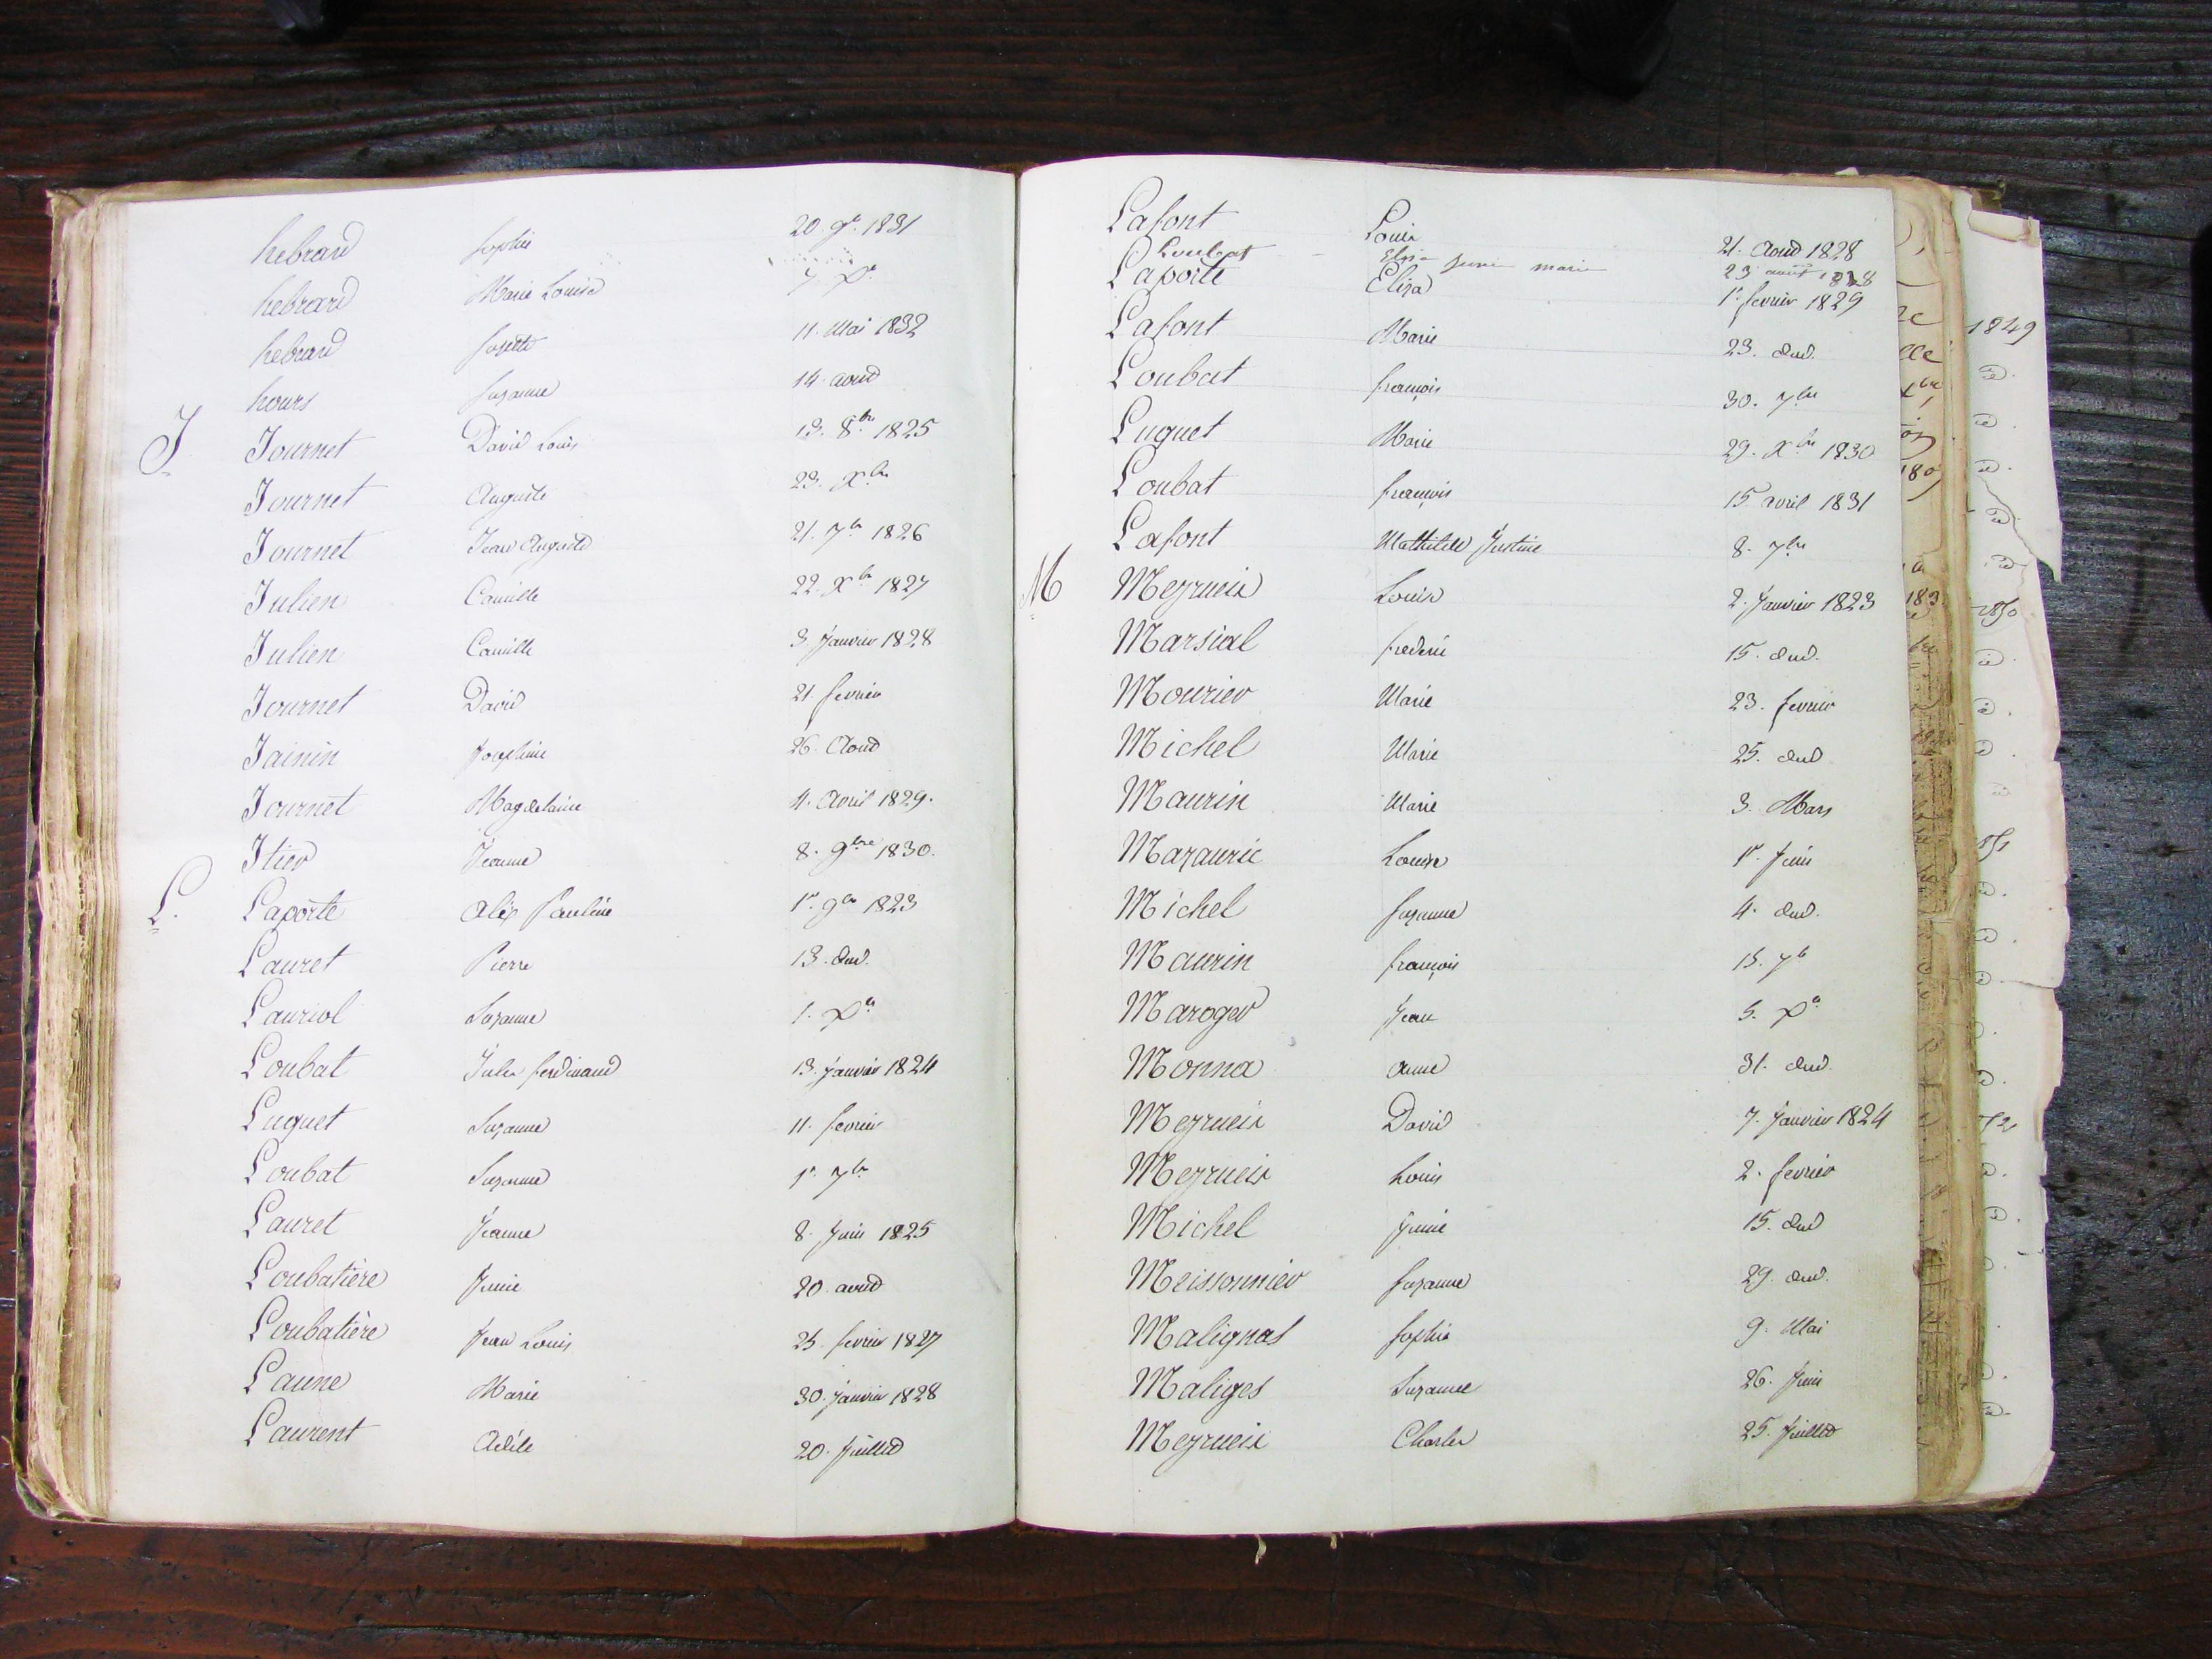 hebrard Sophie 20. 9e. 1831
hebrard Marie Louise 7. Xe
hebrard Susette 11. Mai 1832
hours Suzanne 14. aoud
J Journet David Louis 13. 8bre 1825
Journet Auguste 23. Xbre
Journet Jean Auguste 21. 7bre 1826
Julien Camille 22. Xbre 1827
Julien Camille 3. Janvier 1828
Journet David 21. fevrier
Jainin Josephine 26. Aoud
Journet Magdelaine 4. Avril 1829.
Itier Jeanne 8. 9bre 1830.
L. Laporte Alix Pauline 1er. 9bre 1823
Lauret Pierre 13. dud.
Lauriol Suzanne 1. Xe
Loubat Jules ferdinand 13. Janvier 1824
Luguet Suzanne 11. fevrier
Loubat Suzanne 1er. 7bre
Lauret Jeanne 8. Juin 1825
Loubatière Junie 20. aoud
Loubatière Jean Louis 25. fevrier 1827
Laune Marie 30. Janvier 1828
Laurent Adèle 20. Juillet
Lafont Louis 21. Aoud 1828
Loubat Elisa Junie marie 23 aout 1828
Laporte Eliza 1er. fevrier 1829
Lafont Marie 23. dud.
Loubat françois 30. 7bre
Luguet Marie 29. Xbre 1830
Loubat françois 15. avril 1831
Lafont Mathilde Justine 8. 7bre
M Mezrueix Louise 2. Janvier 1823
Marsial frederic 15. dud.
Mourier Marie 23. fevrier
Michel Marie 25. dud
Maurin Marie 3. Mars
Mazauric Louise 1er. Juin
Michel Suzanne 4. dud.
Maurin françois 15. 7b
Maroger Jean 5. Xe
Monna anne 31. dud.
Mezrueix David 7. Janvier 1824
Mezrueix Louis 2. fevrier
Michel Junie 15. dud
Meissonnier Suzanne 29. dud.
Malignas Sophie 9. Mai
Maliges Suzanne 26. Juin
Mezrueix Charles 25. Juillet
1849